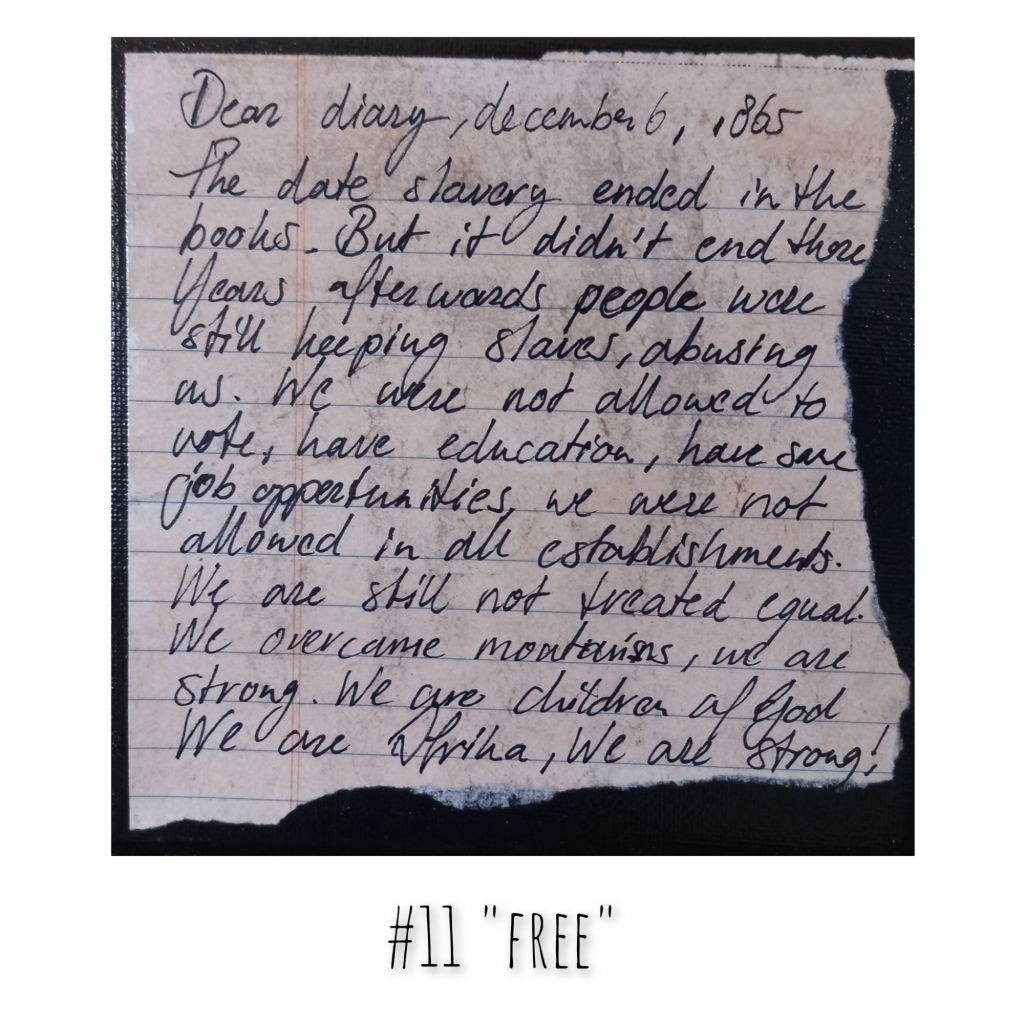 Dear diary, december 6, 1865
The date slavery ended in the
books. But it didn't end there
Years afterwards people were
still keeping slaves, abusing
us. We were not allowed to
vote, have education, have sure
job opportunities, we were not
allowed in all establishments.
We are still not treated equal.
We overcame , we are
strong. We are children of God
We are Afrika, We are strong!
#11 "FREE"